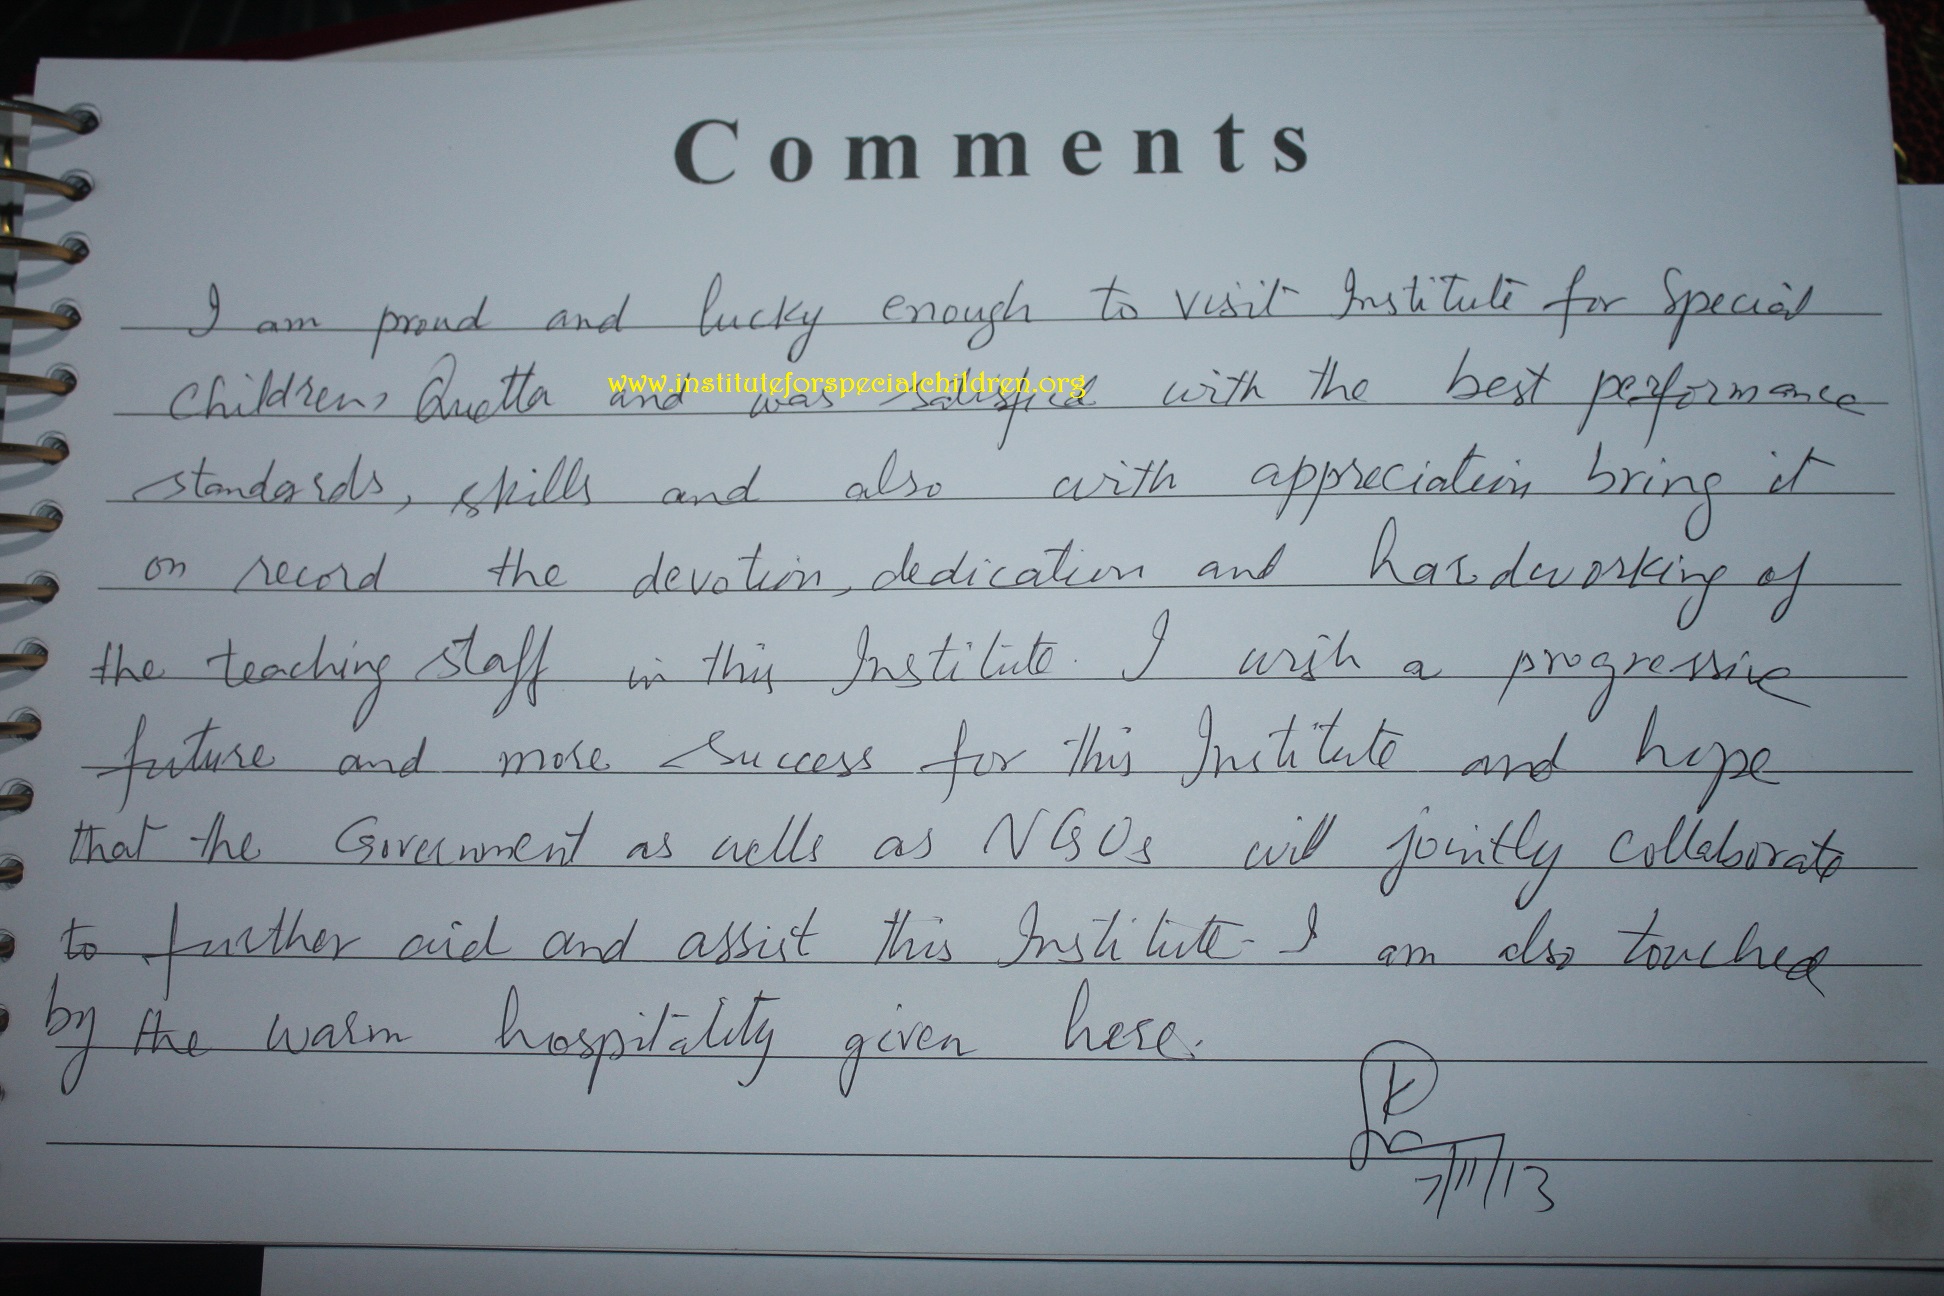 Comments
I am proud and lucky enough to visit Institute for Special
Children, Quetta and was satisfied with the best performance
www.instituteforspecialchildren.org
standards, skills and also with appreciation bring it
on record the devotion, dedication and hardworking of
the teaching staff in this Institute. I wish a progressive
future and more success for this Institute and hope
that the Government as wells as NGOs will jointly collaborate
to further aid and assist this Institute. I am also touched
by the warm hospitality given here.
7/11/13